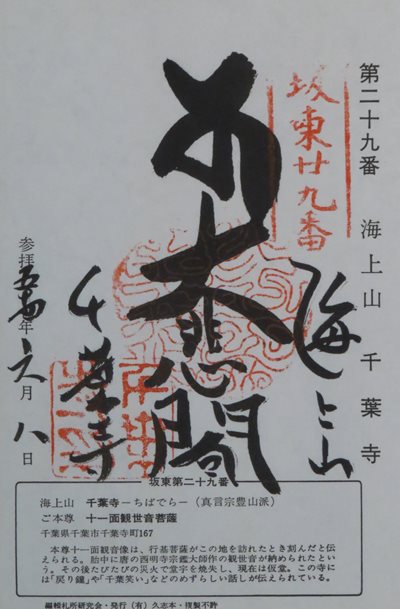 第二十九番　海上山　千葉寺
坂東廿九番
海上山
大悲閣
千葉寺
参拝　年六月八日
坂東第二十九番
海上山　千葉寺－ちばでら－（真言宗豊山派）
ご本尊　十一面観世音菩薩
千葉県千葉市千葉寺町167
本尊十一面観音像は、行基菩薩がこの地を訪れたとき刻んだと伝
えられる。胎中に唐の西明寺宗鑑大師作の観世音が納められたとい
う。その後たびたびの災火で堂宇を焼失し、現在は仮堂。この寺に
は“戻り鐘”や“千葉笑い”などのめずらしい話しが伝えられている。
編輯札所研究会・発行（有）久志本・複製不許